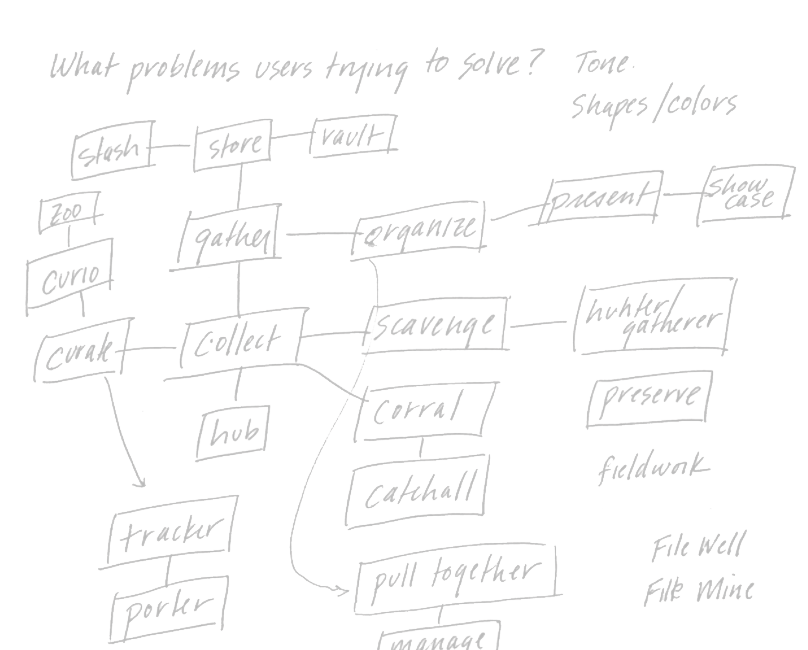 What problems users trying to solve? Tone.
Shapes/colors
stash
store
vault
zoo
gather
organize
present
show
case
curio
curate
collect
scavenge
hunter/
gatherer
hub
corral
preserve
catchall
fieldwork
tracker
porter
pull together
manage
File Well
File Mine